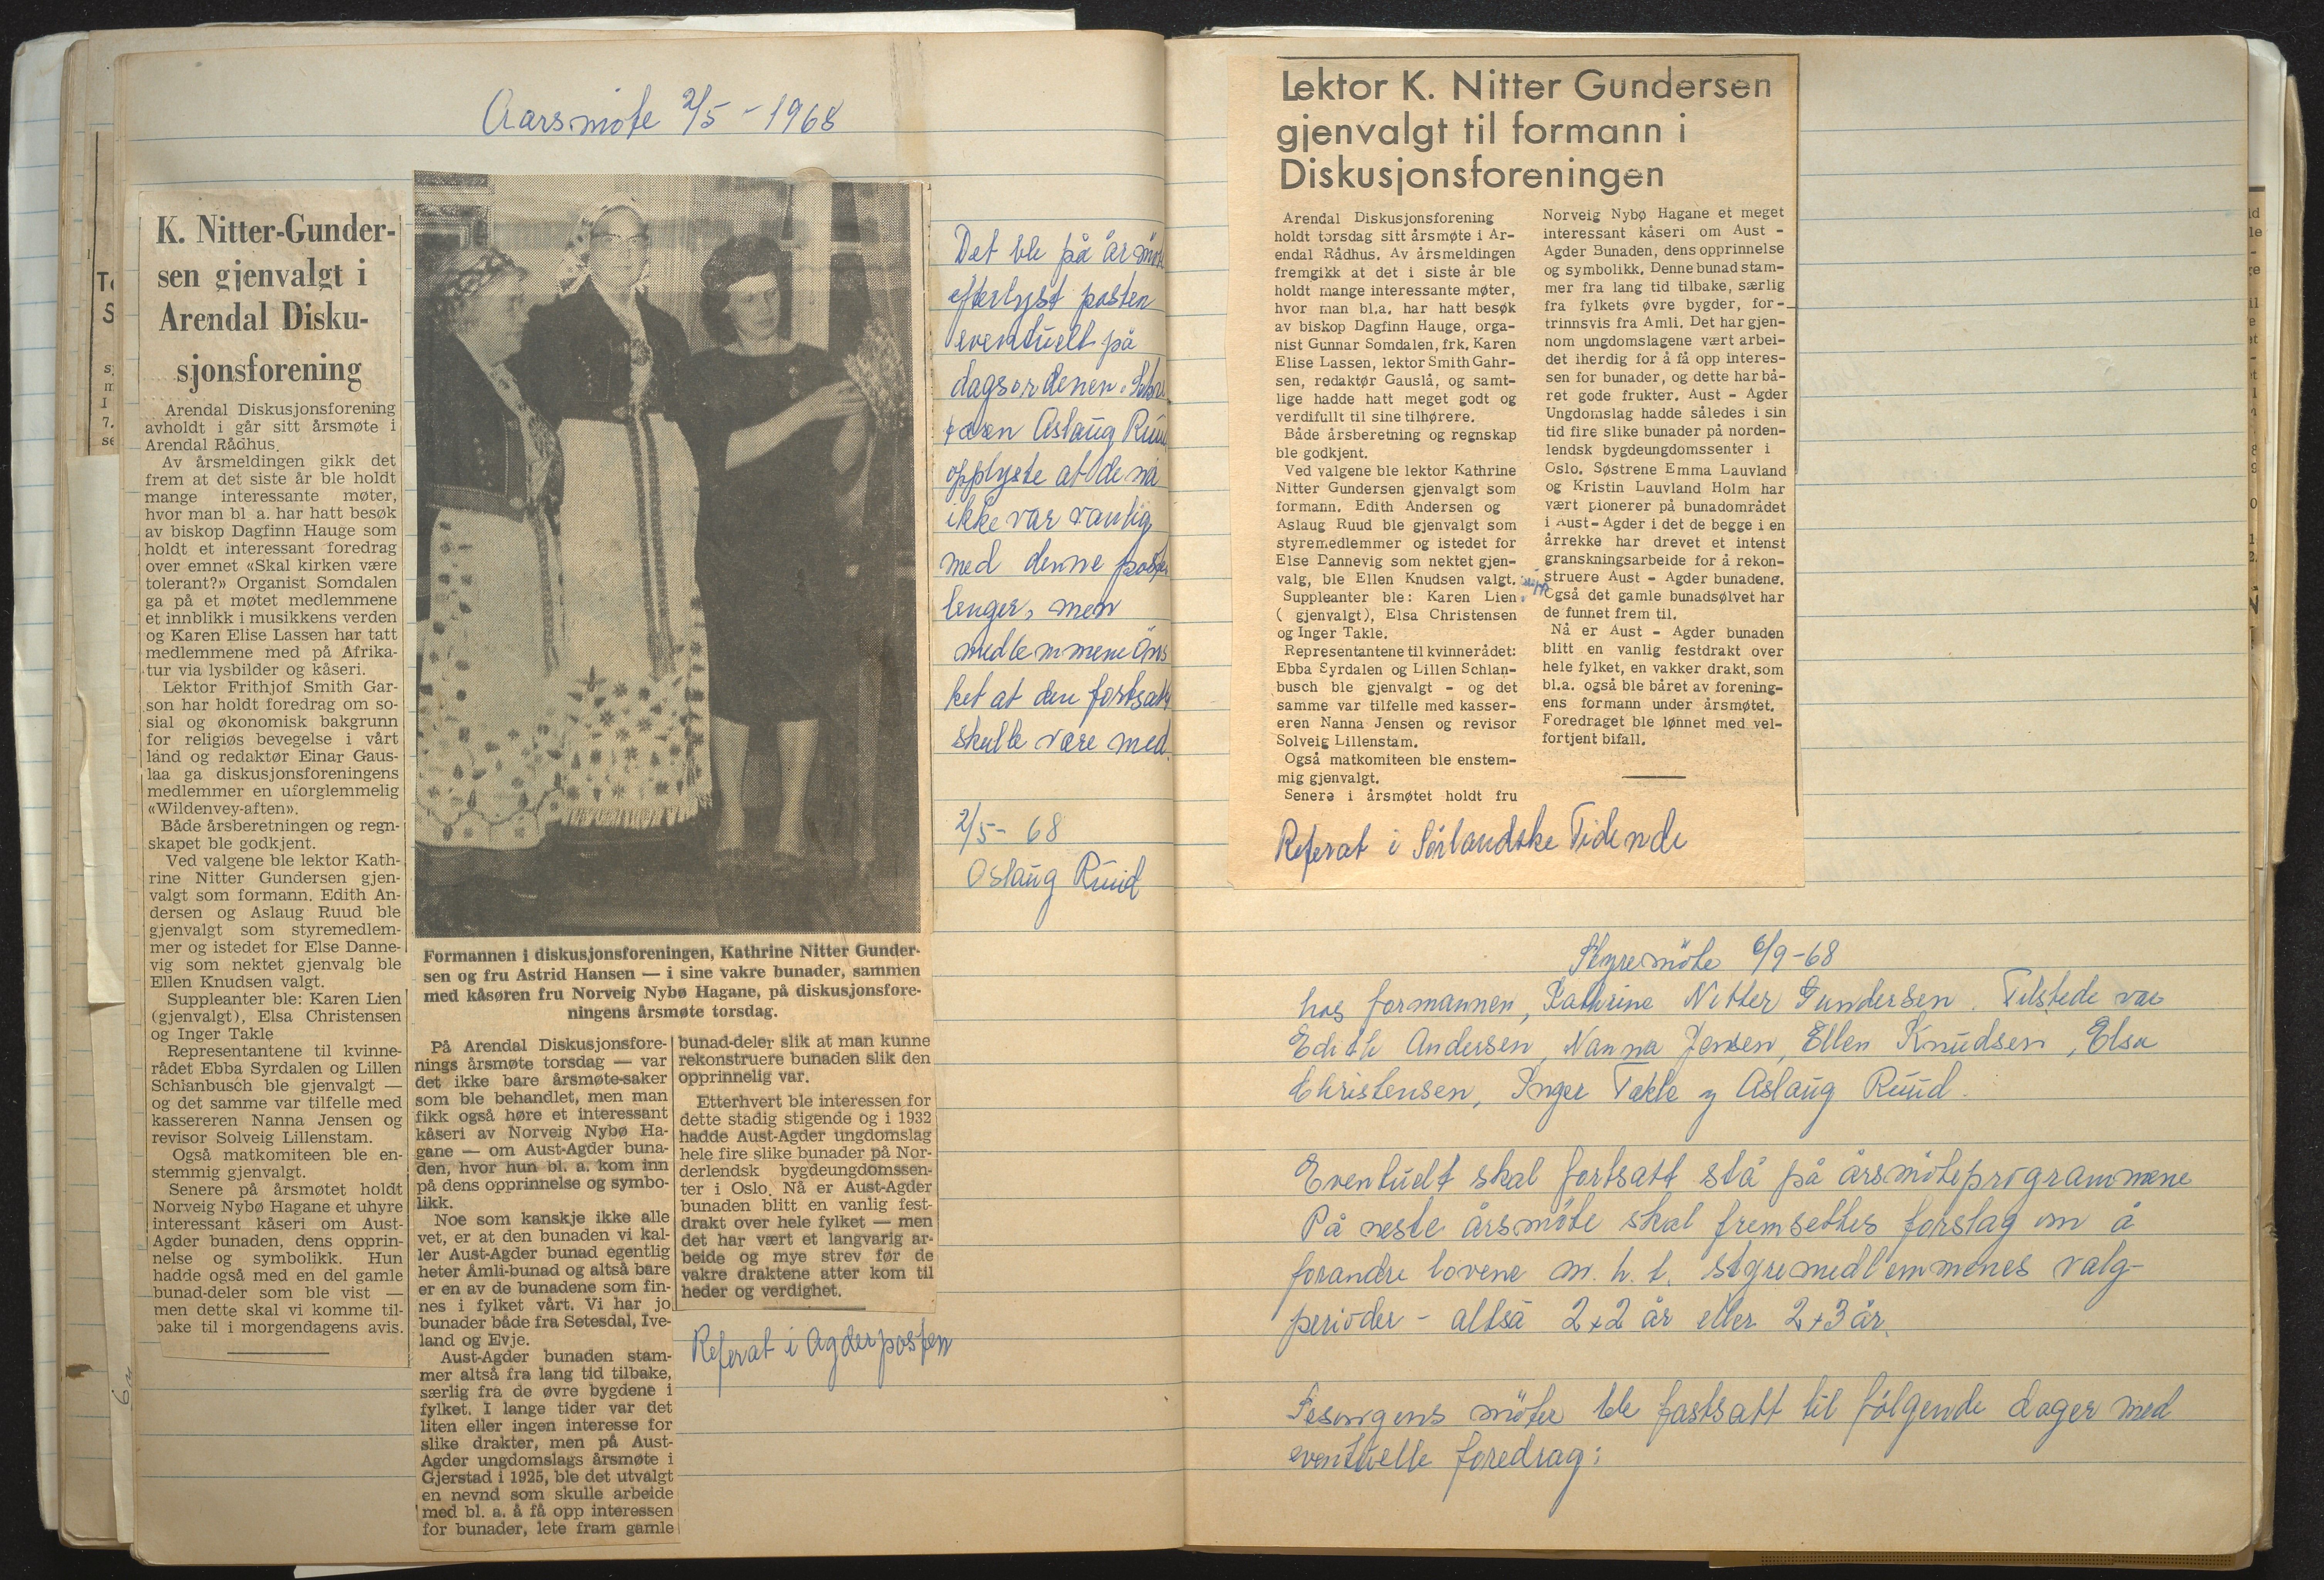 Aarsmöte 2/5 - 1968
K. Nitter-Gunder-
sen gjenvalgt i
Arendal Disku-
sjonsforening
Arendal Diskusjonsforening
avholdt i går sitt årsmøte i
Arendal Rådhus.
Av årsmeldingen gikk det
frem at det siste år ble holdt
mange interessante møter,
hvor man bl a. har hatt besøk
av biskop Dagfinn Hauge som
holdt et interessant foredrag
over emnet «Skal kirken være
tolerant?» Organist Somdalen
ga på et møtet medlemmene
et innblikk i musikkens verden
og Karen Elise Lassen har tatt
medlemmene med på Afrika-
tur via lysbilder og kåseri.
Lektor Frithjof Smith Gar-
son har holdt foredrag om so-
sial og økonomisk bakgrunn
for religiøs bevegelse i vårt
land og redaktør Einar Gaus-
laa ga diskusjonsforeningens
medlemmer en uforglemmelig
«Wildenvey-aften».
Både årsberetningen og regn-
skapet ble godkjent.
Ved valgene ble lektor Kath-
rine Nitter Gundersen gjen-
valgt som formann. Edith An-
dersen og Aslaug Ruud ble
gjenvalgt som styremedlem-
mer og istedet for Else Danne-
vig som nektet gjenvalg ble
Ellen Knudsen valgt.
Suppleanter ble: Karen Lien
(gjenvalgt), Elsa Christensen
og Inger Takle
Representantene til kvinne-
rådet Ebba Syrdalen og Lillen
Schlanbusch ble gjenvalgt —
og det samme var tilfelle med
kassereren Nanna Jensen og
revisor Solveig Lillenstam.
Også matkomiteen ble en-
stemmig gjenvalgt.
Senere på årsmøtet holdt
Norveig Nybø Hagane et uhyre
interessant kåseri om Aust-
Agder bunaden, dens opprin-
nelse og symbolikk. Hun
hadde også med en del gamle
bunad-deler som ble vist —
men dette skal vi komme til-
bake til i morgendagens avis.
Formannen i diskusjonsforeningen, Kathrine Nitter Gunder-
sen og fru Astrid Hansen — i sine vakre bunader, sammen
med kåsøren fru Norveig Nybø Hagane, på diskusjonsfore-
ningens årsmøte torsdag.
På Arendal Diskusjonsfore-
nings årsmøte torsdag — var
det ikke bare årsmøte-saker
som ble behandlet, men man
fikk også høre et interessant
kåseri av Norveig Nybø Ha-
gane — om Aust-Agder buna-
den, hvor hun bl. a. kom inn
på dens opprinnelse og symbo-
likk.
Noe som kanskje ikke alle
vet, er at den bunaden vi kal-
ler Aust-Agder bunad egentlig
heter Åmli-bunad og altså bare
er en av de bunadene som fin-
nes i fylket vårt. Vi har jo
bunader både fra Setesdal, Ive-
land og Evje.
Aust-Agder bunaden stam-
mer altså fra lang tid tilbake,
særlig fra de øvre bygdene i
fylket. I lange tider var det
liten eller ingen interesse for
slike drakter, men på Aust-
Agder ungdomslags årsmøte i
Gjerstad i 1925, ble det utvalgt
en nevnd som skulle arbeide
med bl. a. å få opp interessen
for bunader, lete fram gamle
bunad-deler slik at man kunne
rekonstruere bunaden slik den
opprinnelig var.
Etterhvert ble interessen for
dette stadig stigende og i 1932
hadde Aust-Agder ungdomslag
hele fire slike bunader på Nor-
derlendsk bygdeungdomssen-
ter i Oslo. Nå er Aust-Agder
bunaden blitt en vanlig fest-
drakt over hele fylket — men
det har vært et langvarig ar-
beide og mye strev før de
vakre draktene atter kom til
heder og verdighet.
Referat i Agderposten
Det ble på årsmöte
efterlyst posten
eventuelt på
dagsordenen. Sekre
tæren Aslaug Ruud
opplyste at de nå
ikke var vanlig
med denne posten
lenger, men
medlemmene öns
ket at den fortsatt
skulle være med.
2/5 - 68
Aslaug Ruud
Lektor K. Nitter Gundersen
gjenvalgt til formann i
Diskusjonsforeningen
Arendal Diskusjonsforening
holdt torsdag sitt årsmøte i Ar-
endal Rådhus. Av årsmeldingen
fremgikk at det i siste år ble
holdt mange interessante møter,
hvor man bl.a. har hatt besøk
av biskop Dagfinn Hauge, orga-
nist Gunnar Somdalen, frk. Karen
Elise Lassen, lektor Smith Gahr-
sen, redaktør Gauslå, og samt-
lige hadde hatt meget godt og
verdifullt til sine tilhørere.
Både årsberetning og regnskap
ble godkjent.
Ved valgene ble lektor Kathrine
Nitter Gundersen gjenvalgt som
formann. Edith Andersen og
Aslaug Ruud ble gjenvalgt som
styremedlemmer og istedet for
Else Dannevig som nektet gjen-
valg, ble Ellen Knudsen valgt.
Suppleanter ble: Karen Lien
( gjenvalgt), Elsa Christensen
og Inger Takle.
Representantene til kvinnerådet:
Ebba Syrdalen og Lillen Schlan-
busch ble gjenvalgt - og det
samme var tilfelle med kasser-
eren Nanna Jensen og revisor
Solveig Lillenstam.
Også matkomiteen ble enstem-
mig gjenvalgt.
Senere i årsmøtet holdt fru
Norveig Nybø Hagane et meget
interessant kåseri om Aust -
Agder Bunaden, dens opprinnelse
og symbolikk. Denne bunad stam-
mer fra lang tid tilbake, særlig
fra fylkets øvre bygder, for-
trinnsvis fra Amli. Det har gjen-
nom ungdomslagene vært arbei-
det iherdig for å få opp interes-
sen for bunader, og dette har bå-
ret gode frukter. Aust - Agder
Ungdomslag hadde således i sin
tid fire slike bunader på norden-
lendsk bygdeungdomssenter i
Oslo. Søstrene Emma Lauvland
og Kristin Lauvland Holm har
vært pionerer på bunadområdet
i Aust-Agder i det de begge i en
årrekke har drevet et intenst
granskningsarbeide for å rekon-
struere Aust - Agder bunadene.
Også det gamle bunadsølvet har
de funnet frem til.
Nå er Aust - Agder bunaden
blitt en vanlig festdrakt over
hele fylket, en vakker drakt, som
bl.a. også ble båret av forening-
ens formann under årsmøtet.
Foredraget ble lønnet med vel-
fortjent bifall.
Referat i Sörlandske Tidende
Styremöte 6/9-68
hos formannen, Kathrine Nitter Gundersen. Tilstede var
Edith Andersen, Nanna Jensen, Ellen Knudsen, Elsa
Christensen, Inger Takle og Aslaug Ruud.
Eventuelt skal fortsatt stå på årsmöteprogrammene
På neste årsmöte skal fremsettes forslag om å
forandre lovene m. h. t. styremedlemmenes valg-
perioder - altså 2+2 år eller 2+3 år.
Sesongens möter ble fastsatt til fölgende dager med
eventuelle foredrag: